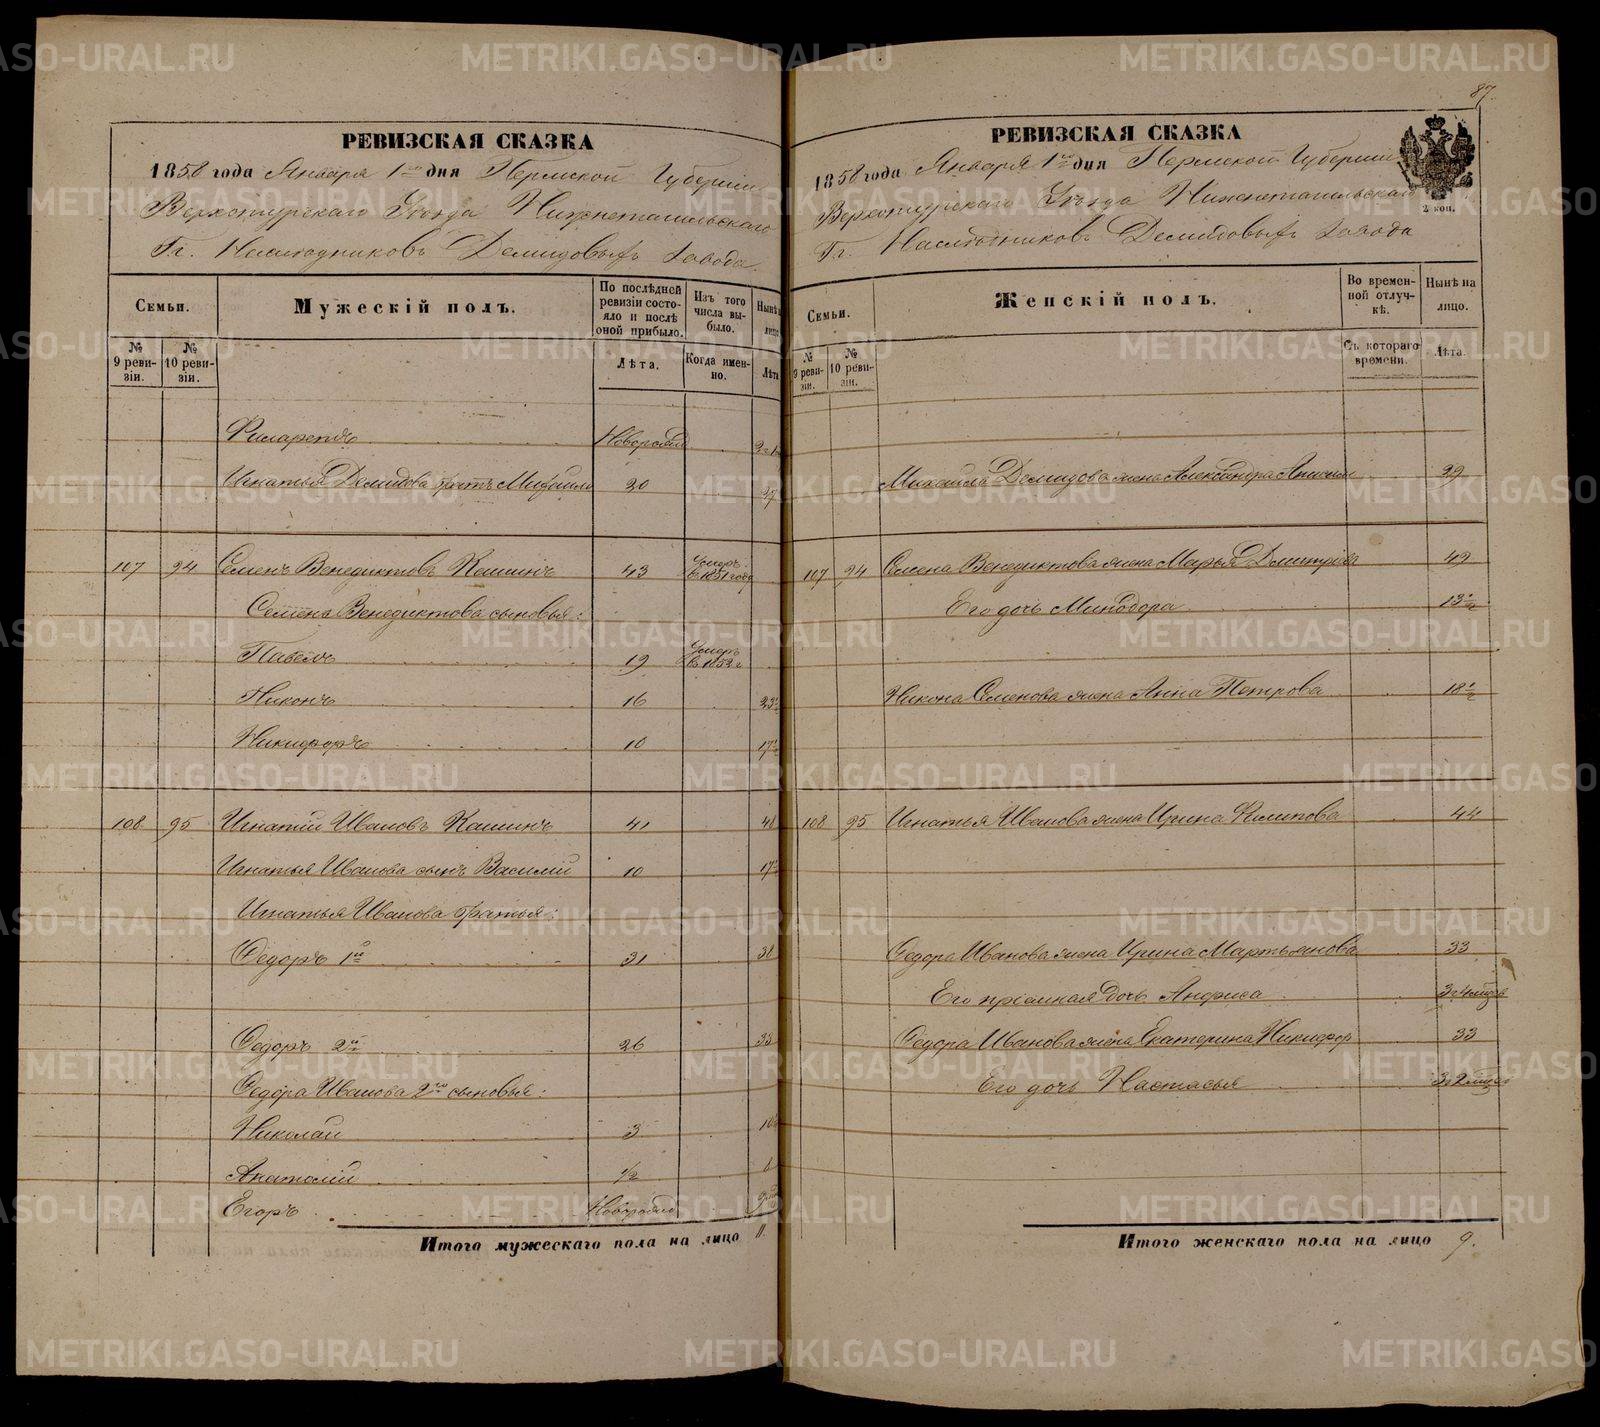 87.
РЕВИЗСКАЯ СКАЗКА
1858 года Января 1го дня Пермской Губернии
Верхотурскаго Уѣзда Нижнетагильскаго
Гг. Наслѣдниковъ Демидовыхъ завода
Семьи.
Мужескій полъ.
По послѣдней ревизіи состояло и послѣ оной прибыло.
Изъ того числа выбыло.
Нынѣ на лицо.
№ 9 ревизіи.
№ 10 ревизіи.
Лѣта.
Когда именно.
Лѣта
Филаретъ Новорожд.
Игнатья Демидова братъ Михаило 30 37
107 94 Семенъ Венедиктовъ Кашинъ 43 Умеръ въ 1851 году
Семена Венедиктова сыновья:
Павелъ 19 Умеръ
Никонъ 16 23
Никифоръ 10 17
108 95 Игнатій Ивановъ Кашинъ 41 48
Игнатья Иванова сынъ Василій 10 17
Игнатья Иванова братья:
Ѳедоръ 1й 31 38
Ѳедоръ 2й 26 33
Ѳедора Иванова 2го сыновья:
Николай 3 10
Анатолій 1/2
Егоръ Новорожд.
Итого мужескаго пола на лицо 11.
РЕВИЗСКАЯ СКАЗКА
1858 года Января 1го дня Пермской Губерніи
Верхотурскаго Уѣзда Нижнетагильскаго
Гг. Наслѣдниковъ Демидовыхъ завода
2 коп.
Семьи.
Женскій полъ.
Во временной отлучкѣ.
Нынѣ на лицо.
№ 9 ревизіи.
№ 10 ревизіи.
Съ котораго времени.
Лѣта.
Михаила Демидова жена Александра 29
107 94 Семена Венедиктова жена Марья Дмитріева 49
Его дочь Минодора 13
Никона Семенова жена Анна Петрова 18
108 95 Игнатья Иванова жена Ирина Филипова 44
Ѳедора Иванова жена Ирина Мартьянова 33
Его пріемная дочь Анфиса
Ѳедора Иванова жена Екатерина Никифор 33
Его дочь Настасья
Итого женскаго пола на лицо 9.
METRIKI.GASO-URAL.RU